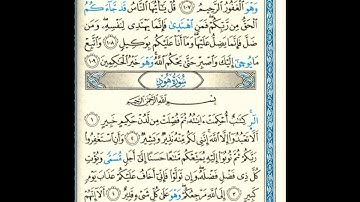 وَهُوَ الْغَفُورُ الرَّحِيمُ ١٠٧ قُلْ يَٰٓأَيُّهَا النَّاسُ قَدْ جَآءَكُمُ
الْحَقُّ مِن رَّبِّكُمْ فَمَنِ اهْتَدَىٰ فَإِنَّمَا يَهْتَدِى لِنَفْسِهِۦ وَمَن
ضَلَّ فَإِنَّمَا يَضِلُّ عَلَيْهَا وَمَآ أَنَا۠ عَلَيْكُم بِوَكِيلٍ ١٠٨ وَاتَّبِعْ
مَا يُوحَىٰٓ إِلَيْكَ وَاصْبِرْ حَتَّىٰ يَحْكُمَ اللَّهُ وَهُوَ خَيْرُ الْحَٰكِمِينَ ١٠٩
سُورَةُ هُودٍ
بِسْمِ اللَّهِ الرَّحْمَٰنِ الرَّحِيمِ
الٓر كِتَٰبٌ أُحْكِمَتْ ءَايَٰتُهُۥ ثُمَّ فُصِّلَتْ مِن لَّدُنْ حَكِيمٍ خَبِيرٍ ١
أَلَّا تَعْبُدُوٓا۟ إِلَّا اللَّهَ إِنَّنِى لَكُم مِّنْهُ نَذِيرٌ وَبَشِيرٌ ٢ وَأَنِ اسْتَغْفِرُوا۟
رَبَّكُمْ ثُمَّ تُوبُوٓا۟ إِلَيْهِ يُمَتِّعْكُم مَّتَٰعًا حَسَنًا إِلَىٰٓ أَجَلٍ مُّسَمًّى وَيُؤْتِ
كُلَّ ذِى فَضْلٍ فَضْلَهُۥ وَإِن تَوَلَّوْا۟ فَإِنِّىٓ أَخَافُ عَلَيْكُمْ عَذَابَ يَوْمٍ
كَبِيرٍ ٣ إِلَى اللَّهِ مَرْجِعُكُمْ وَهُوَ عَلَىٰ كُلِّ شَىْءٍ قَدِيرٌ ٤ أَلَآ إِنَّهُمْ